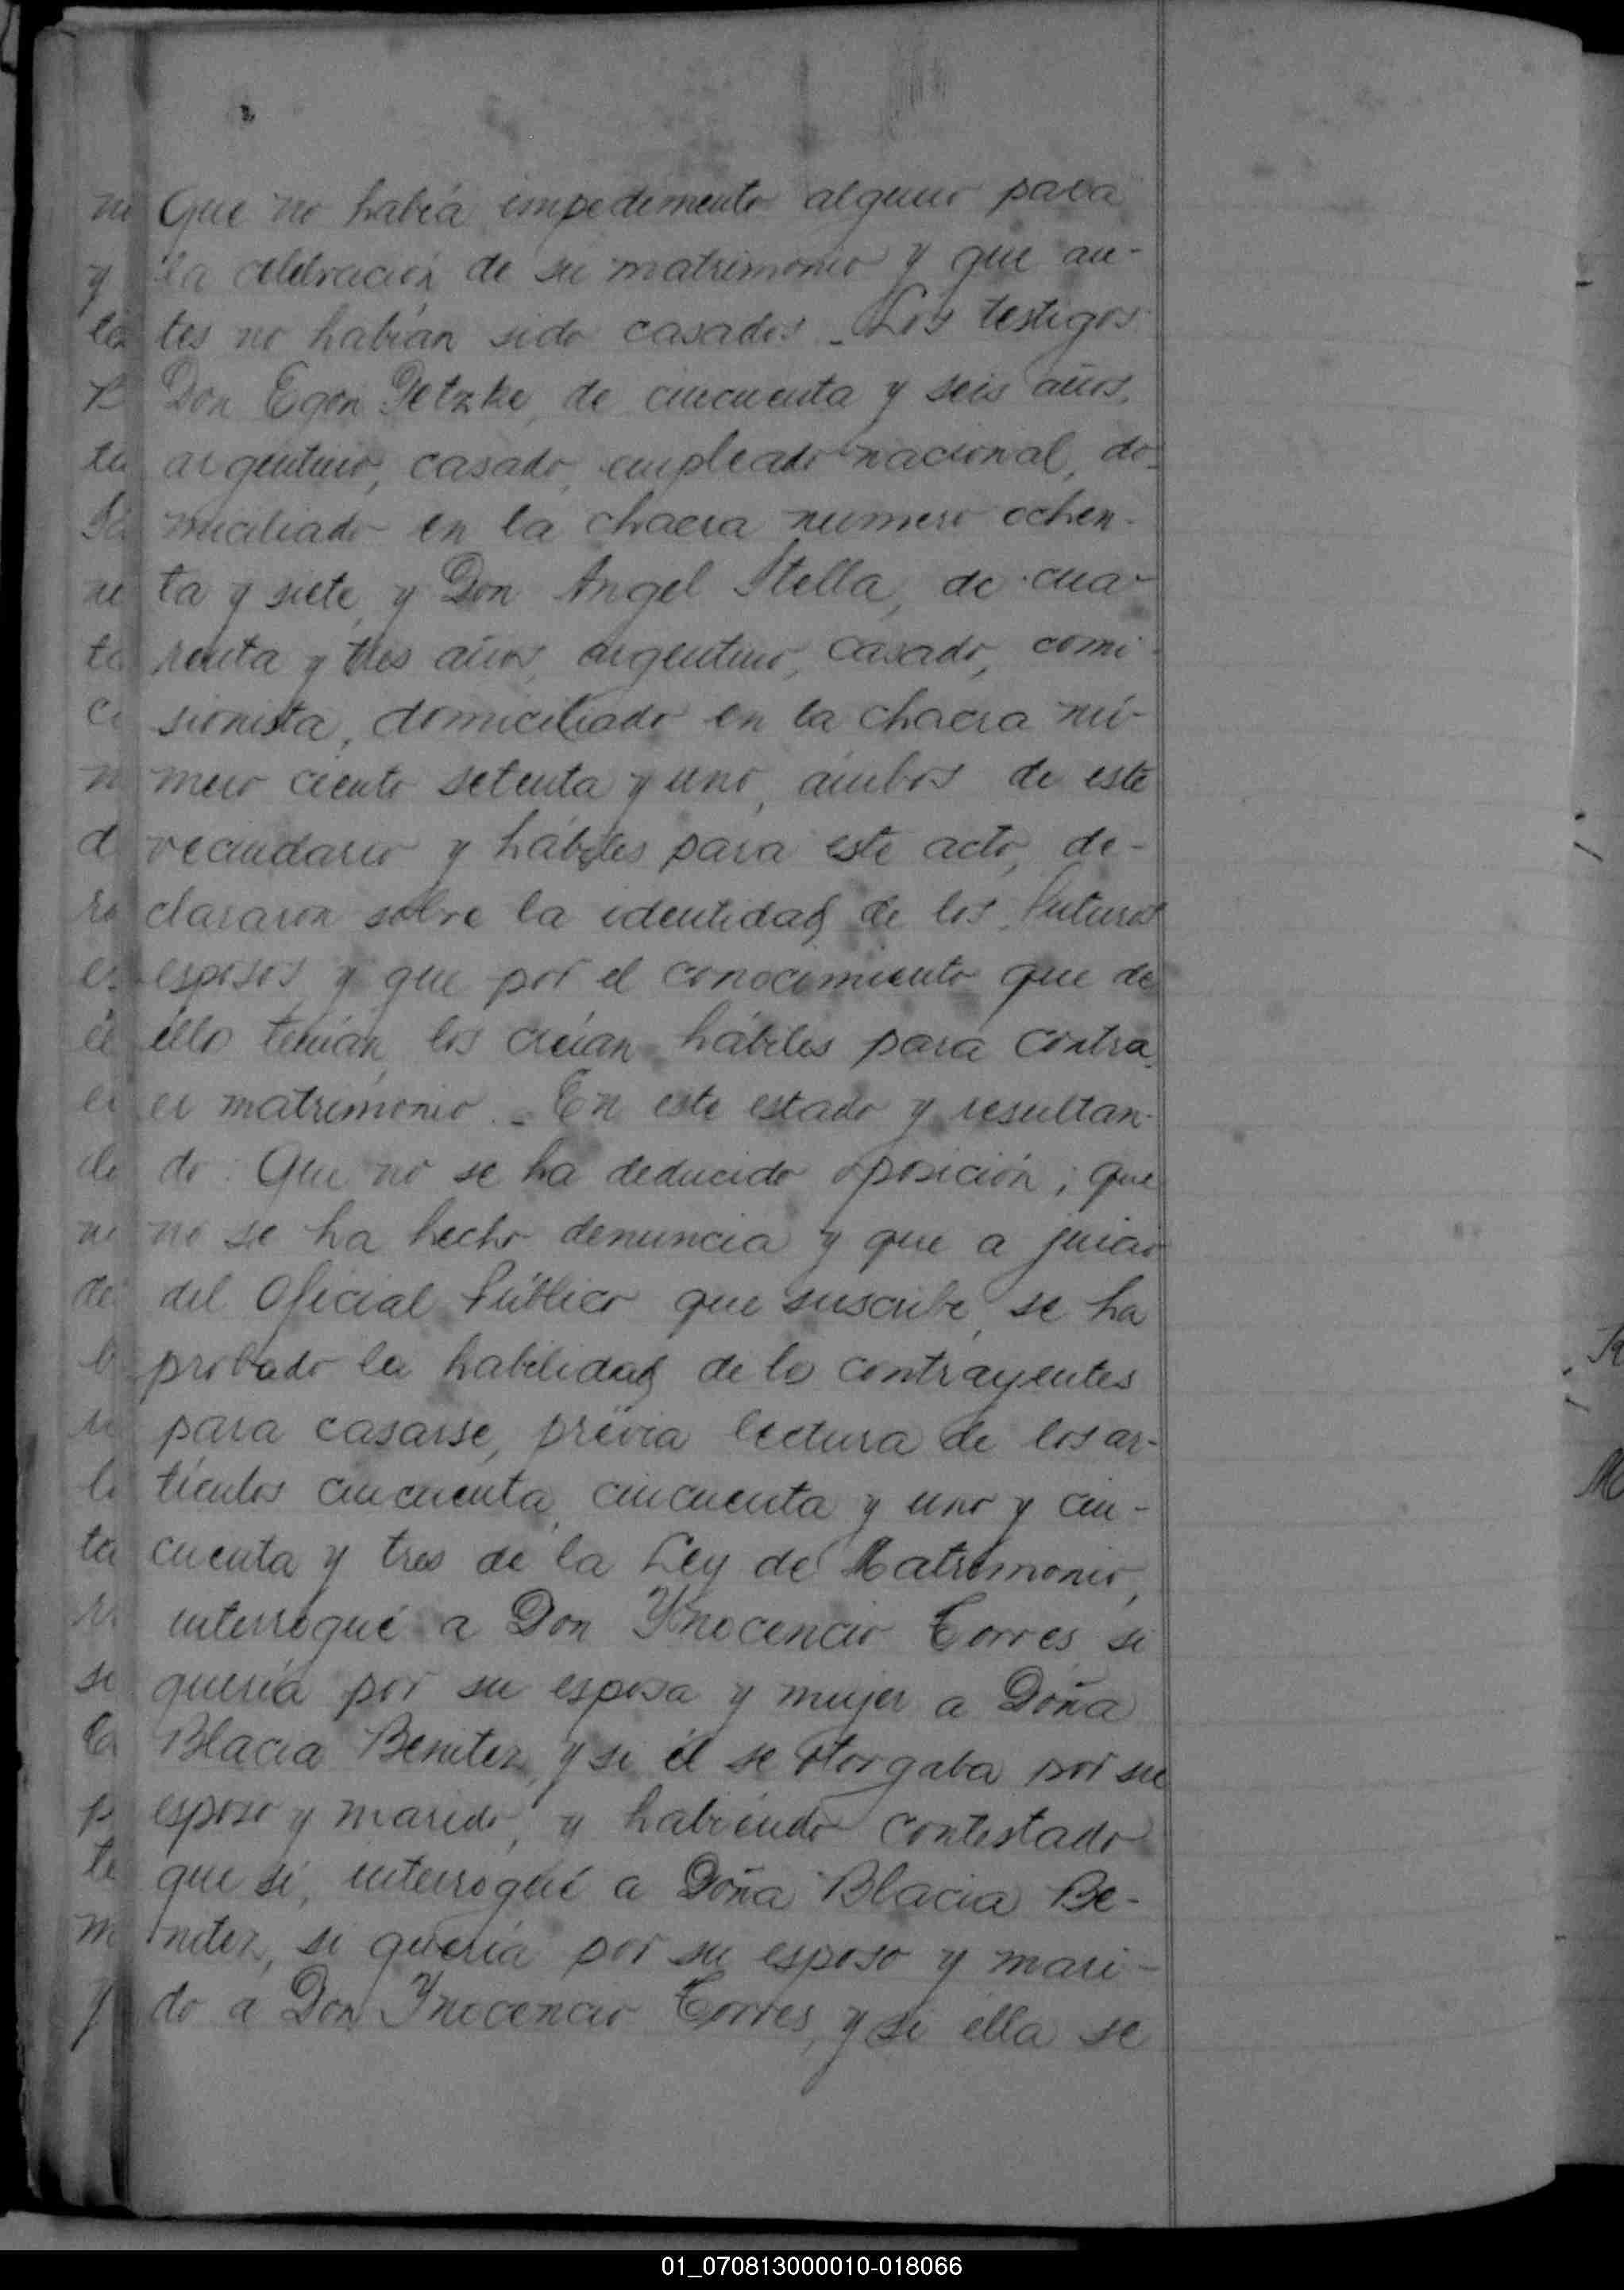 Que no había impedimento alguno para
la celebración de su matrimonio y que an-
tes no habían sido casados. Los testigos
Don Egon Petzke, de cincuenta y seis años,
argentino, casado, empleado nacional, do-
miciliado en la chacra numero ochen-
ta y siete, y Don Angel Stella, de cua-
renta y tres años, argentino, casado, comi-
sionista, domiciliado en la chacra nú-
mero ciento setenta y uno, ambos de este
vecindario y hábiles para este acto, de-
clararon sobre la identidad de los futuros
esposos y que por el conocimiento que de
ello tenían, los creían hábiles para contra
er matrimonio. - En este estado y resultan-
do: Que no se ha deducido oposición; que
no se ha hecho denuncia y que a juicio
del Oficial Público que suscribe, se ha
probado la habilidad de lo contrayentes
para casarse, previa lectura de los ar-
tículos cincuenta, cincuenta y uno y cin-
cuenta y tres de la Ley de Matrimonio,
interrogué a Don Ynocencio Torres si
quería por su esposa y mujer a Doña
Blacia Benitez, y si él se otorgaba por su
esposo y marido, y habiendo contestado
que sí, interrogué a Doña Blacia Be-
nitez, si quería por su esposo y mari-
do a Don Ynocencio Torres, y si ella se
01_070813000010-018066